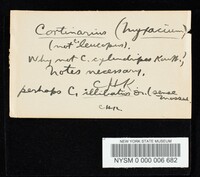 Cortinarius (Myxacium)
(not leucopus).
Why not C. cylindripes Kauff.?
Notes necessary.
CHK
perhaps C. illibatus Fr. (sense
CHK
NEW YORK STATE MUSEUM
NYSM 0 000 006 682